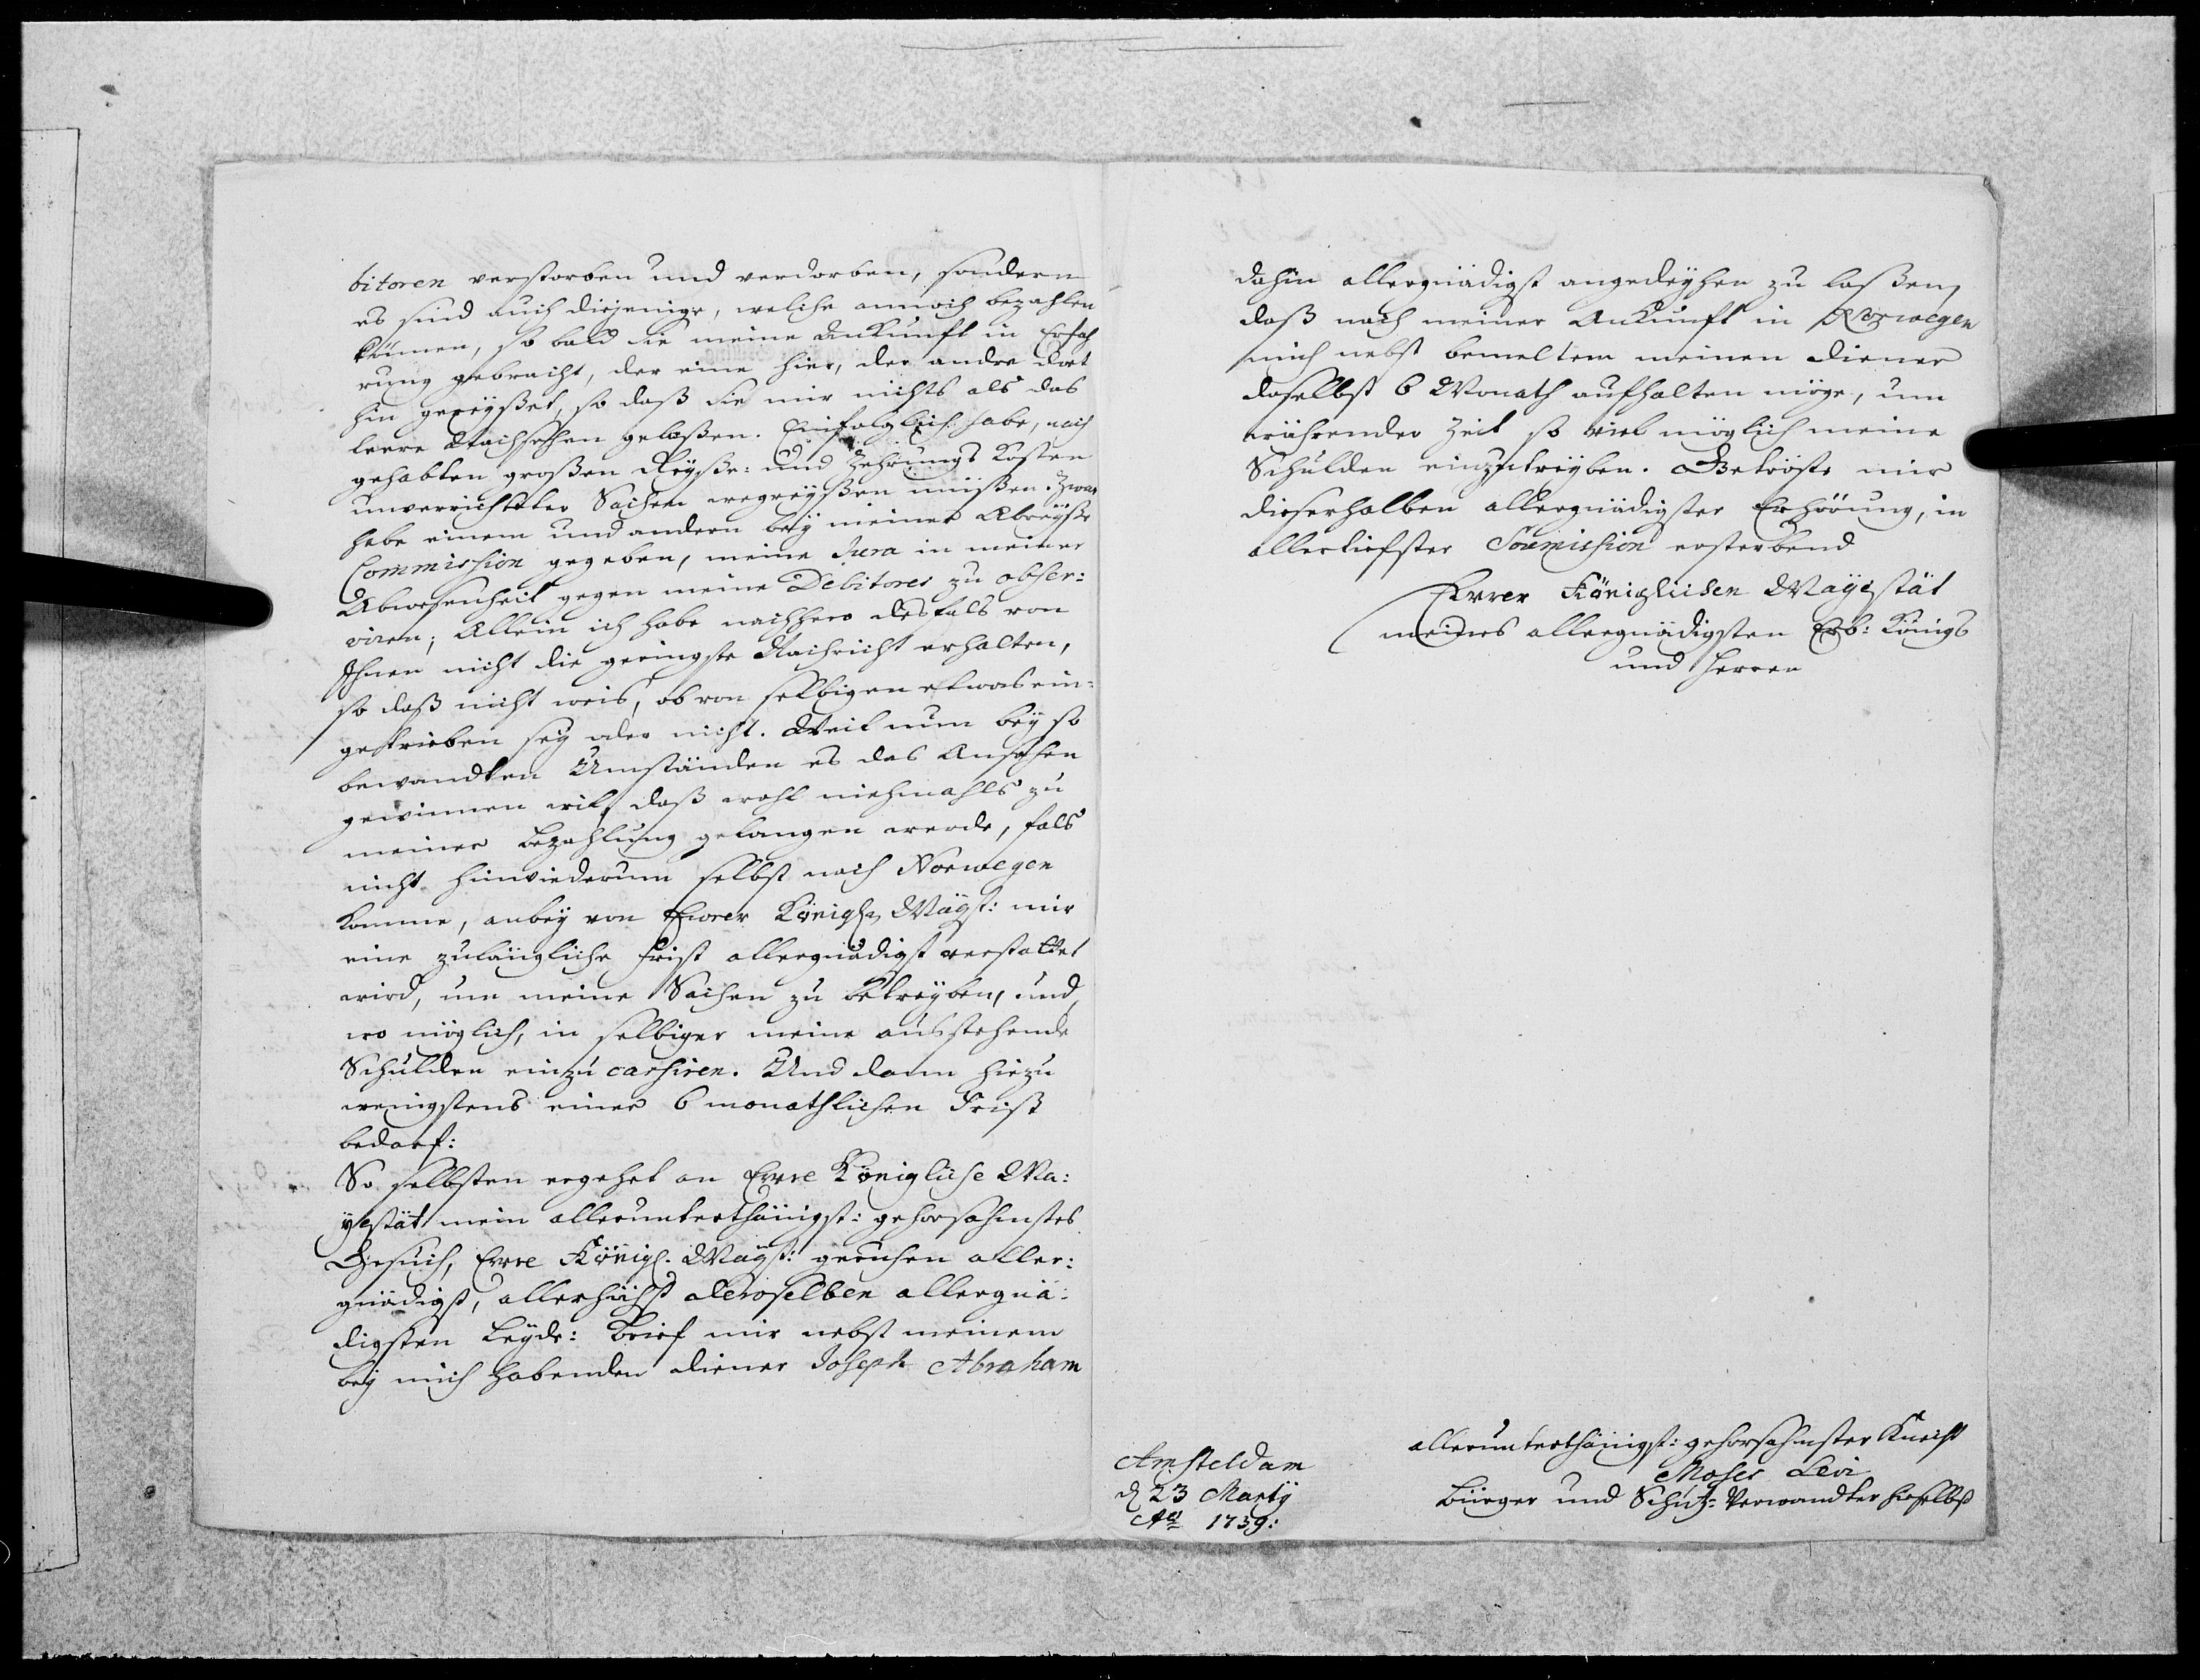 bitoren verstorben und verdorben, sondern
es sind auch diejenige, welche annoch bezahlen
können, so bald sie meine Ankunft in Erfah
rung gebracht, der eine hier, der andre dort
hin gereyßet, so daß sie mir nichts als das
leere Nachsehen gelaßen. Einfolglich habe, nach
gehabten großen Reyße- und Zehrungs Kosten
unverrichteter Sachen wegreyßen müßen. Zwar
habe einem und andern bey meiner Abreyße
Commission gegeben, meine Jura in meiner
Abwesenheit gegen meine Debitores zu obser-
viren; Allein ich habe nachhero desfals von
Ihnen nicht die geringste Nachricht erhalten,
so daß nicht weis, ob von selbigen etwas ein-
getrieben sey oder nicht. Weil nun bey so
bewandten Umständen es das Ansehen
gewinnen wil, daß wohl niehmahls zu
meiner Bezahlung gelangen werde, fals
nicht hinwiederum selbst nach Norwegen
komme, anbey von Ewrer Königl. Mayst: mir
eine zulängliche Frist allergnädigst verstattet
wird, um meine Sachen zu betreyben, und,
wo möglich, in selbiger meine ausstehende
Schulden einzu cassiren. Und dann hiezu
wenigstens einer 6 monathlichen Frist
bedarf:
So selbsten ergehet an Ewre Königliche Ma-
yestät mein allerunterthänigst: gehorsahmstes
Gesuch, Ewre Königl. Mayst: geruhen aller-
gnädigst, allerhöchst Deroselben allergnä-
digsten Leyde: Brief mir nebst meinem
bey mich habenden Diener Joseph Abraham
dahin allergnädigst angedeyhen zu laßen,
daß nach meiner Ankunft in Norwegen
mich nebst bemeltem meinen Diener
daselbst 6 Monath aufhalten möge, um
währender Zeit so viel möglich meine
Schulden einzutreyben. Getröste mir
dieserhalben allergnädigster Erhörung, in
allertiefster Soumission ersterbend
Ewrer Königlichen Mayestät
meines allergnädigsten Erb: Königs
und Herren
allerunterthänigst: gehorsahmster Knecht
Moses Levi
Bürger und Schutz-Verwandter hieselbst
Amsteldam
d 23 Martÿ
Ao 1739: